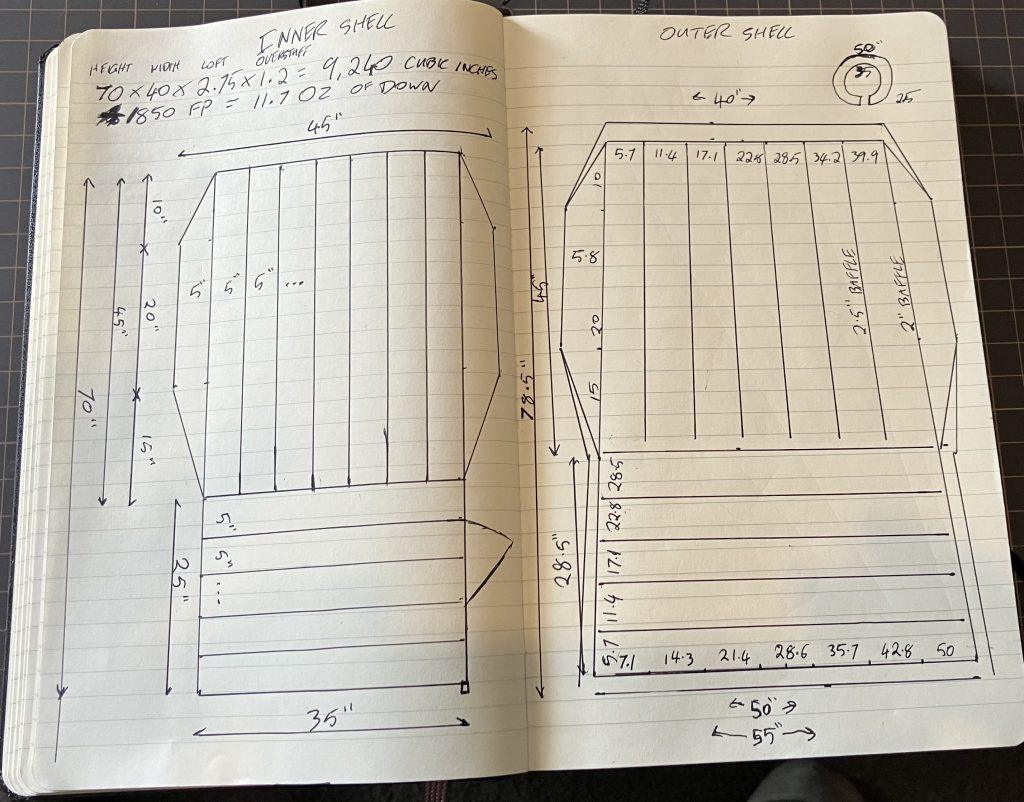 INNER SHELL
HEIGHT WIDTH LOFT OVERSTUFF
70 × 40 × 2.75 × 1.2 = 9,240 CUBIC INCHES
850 FP = 11.7 OZ OF DOWN
45"
10"
20"
45"
70"
15"
5" 5" 5" ...
5"
5"
...
25"
35"
OUTER SHELL
50"
35
25
← 40" →
5.7 11.4 17.1 22.8 28.5 34.2 39.9
10
5.8
45"
20
2.5" BAFFLE
2" BAFFLE
78.5"
15
28.5
22.8
17.1
11.4
5.7
28.5"
7.1 14.3 21.4 28.6 35.7 42.8 50
← 50" →
← 55" →